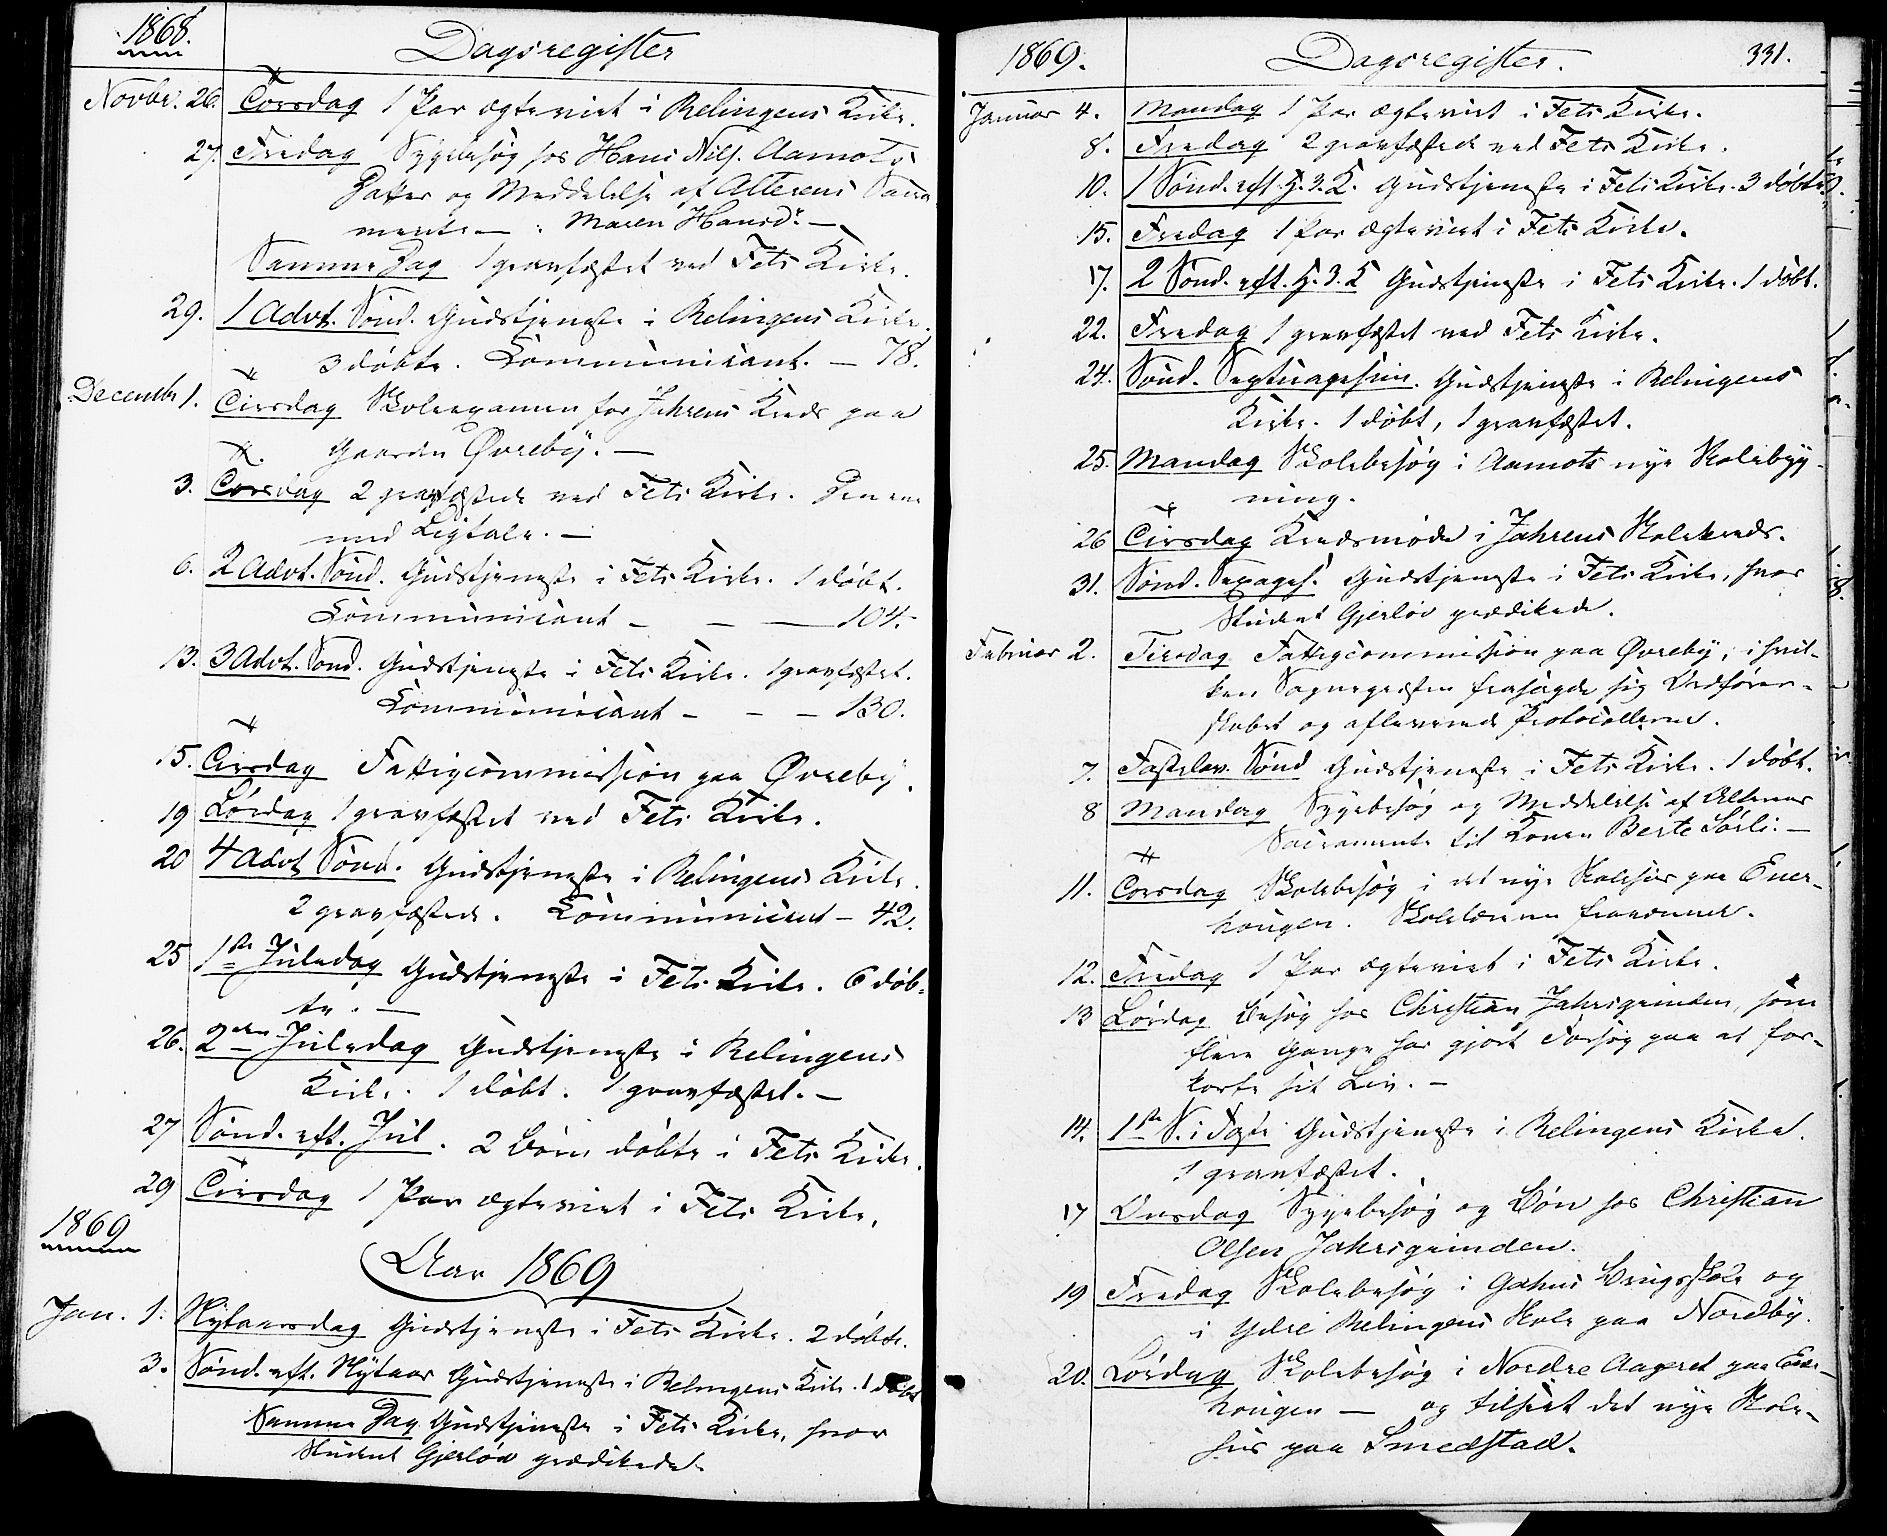 1868.
Dagsregister
Novbr. 26. Torsdag 1 Par ægteviet i Relingens Kirke.
27. Fredag Sygebesøg hos Hans Nils. Aamots
Datter og Meddelelse af Alterens Sacra
mente — : Maren Hansdr. —
Samme Dag 1 gravfæstet ved Fets Kirke.
29. 1 Advt. Sønd. Gudstjeneste i Relingens Kirke.
3 døbte. Communicant. — 78.
Decembr 1. Tirsdag Skoleexamen for Jahrens Kreds paa
Gaarden Øvreby. —
3. Torsdag 2 gravfæstede ved Fets Kirke. Den ene
med Ligtale. —
6. 2 Advt. Sønd. Gudstjeneste i Fets Kirke. 1 døbt.
Communicant — — — 104.
13. 3 Advt. Sond. Gudstjeneste i Fets Kirke. 1 gravfæstet.
Communicant — — — 130.
15. Tirsdag Fattigcommission paa Øvreby.
19 Lørdag 1 gravfæstet ved Fets Kirke.
20 4 Advt Sønd. Gudstjeneste i Relingens Kirke.
2 gravfæstede. Communicant — 42.
25 1ste Juledag Gudstjeneste i Fets Kirke. 6 døb-
te. —
26. 2den Juledag Gudstjeneste i Relingens
Kirke. 1 døbt. 1 gravfæstet. —
27 Sønd. eft. Jul. 2 Børn døbte i Fets Kirke.
29 Tirsdag 1 Par ægteviet i Fets Kirke.
1869
Aar 1869
Jan. 1. Nytaarsdag Gudstjeneste i Fets Kirke. 2 døbte.
3. Sønd. eft. Nytaar Gudstjeneste i Relingens Kirke. 1 døbt
Samme Dag Gudstjeneste i Fets Kirke, hvor
Student Gjerløv prædikede.
1869. Dagsregister. 331.
Januar 4. Mandag 1 Par ægteviet i Fets Kirke.
8. Fredag 2 gravfæstede ved Fets Kirke.
10. 1 Sønd. eft. H. 3. K. Gudstjeneste i Fets Kirke. 3 døbte.
15. Fredag 1 Par ægteviet i Fets Kirke.
17. 2 Sønd. eft. H. 3. K Gudstjeneste i Fets Kirke. 1 døbt.
22. Fredag 1 gravfæstet ved Fets Kirke.
24. Sønd. Septuagesim. Gudstjeneste i Relingens
Kirke. 1 døbt, 1 gravfæstet.
25. Mandag Skolebesøg i Aamots nye Skolebyg-
ning.
26 Tirsdag Kredsmøde i Jahrens Skolekreds.
31. Sønd. Sexages. Gudstjeneste i Fets Kirke, hvor
Student Gjerløv prædikede.
Februar 2. Tirsdag Fattigcommission paa Øvreby, i hvil-
ken Sognepræsten frasagde sig Ordfører-
skabet og afleverede Protocollerne.
7. Fastelav. Sønd Gudstjeneste i Fets Kirke. 1 døbt.
8 Mandag Sygebesøg og Meddelelse af Alterens
Sacramente til Konen Berte Sørli. —
11. Torsdag Skolebesøg i det nye Skolehus paa Ener-
hougen. Skolelæreren fraværende.
12. Fredag 1 Par ægteviet i Fets Kirke.
13 Lørdag Besøg hos Christian Jahrsgrinden, som
flere Gange har gjort Forsøg paa at for-
korte sit Liv. —
14. 1ste S. i Faste Gudstjeneste i Relingens Kirke.
1 gravfæstet.
17 Onsdag Sygebesøg og Bøn hos Christian
Olsen Jahrsgrinden.
19 Fredag Skolebesøg i Gahns Brugsskole og
i Ydre Relingens Skole paa Nordby.
20. Lørdag Skolebesøg i Nordre Aageret paa Ener-
hougen — og tilseet det nye Skole-
hus paa Smedstad.